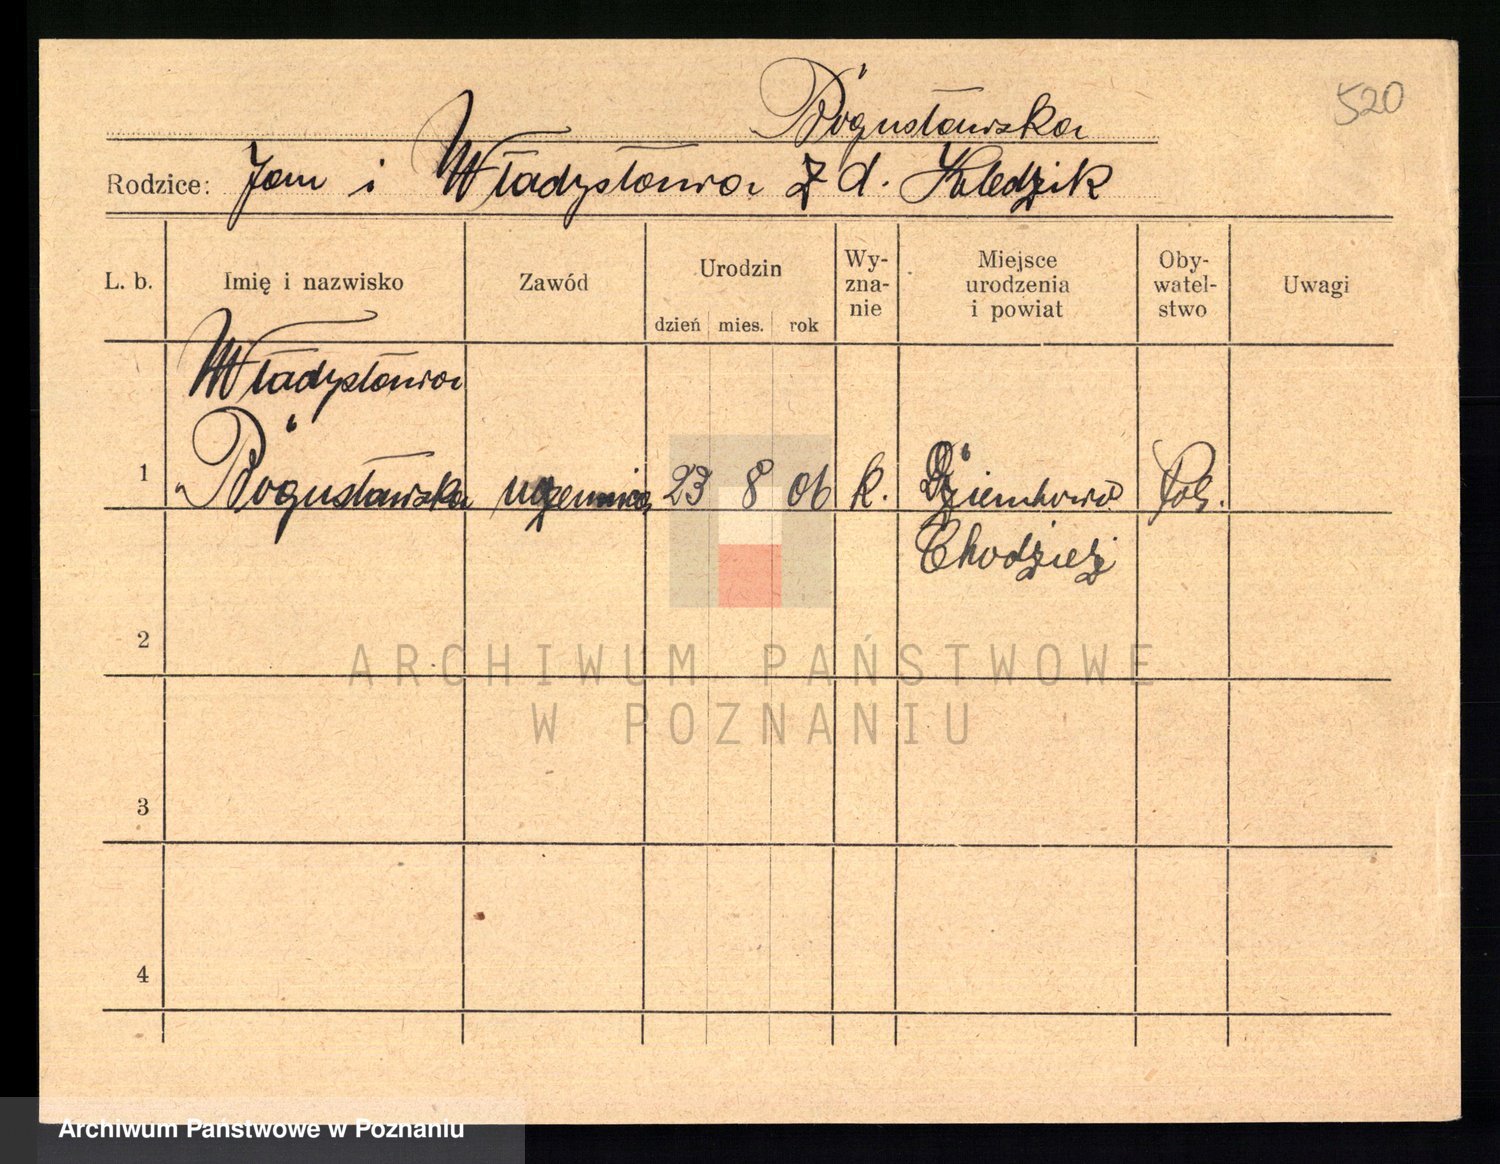 520
Bogusławska
Rodzice: Jan i Władysława z d. Kledzik
L. b. Imię i nazwisko Zawód Urodzin dzień mies. rok Wy-zna-nie Miejsce urodzenia i powiat Oby-watel-stwo Uwagi
Władysława
1 Bogusławska uczennica 23 8 06 k. Dziembowo Pol.
Chodzież
2
3
4
ARCHIWUM PAŃSTWOWE
W POZNANIU
Archiwum Państwowe w Poznaniu